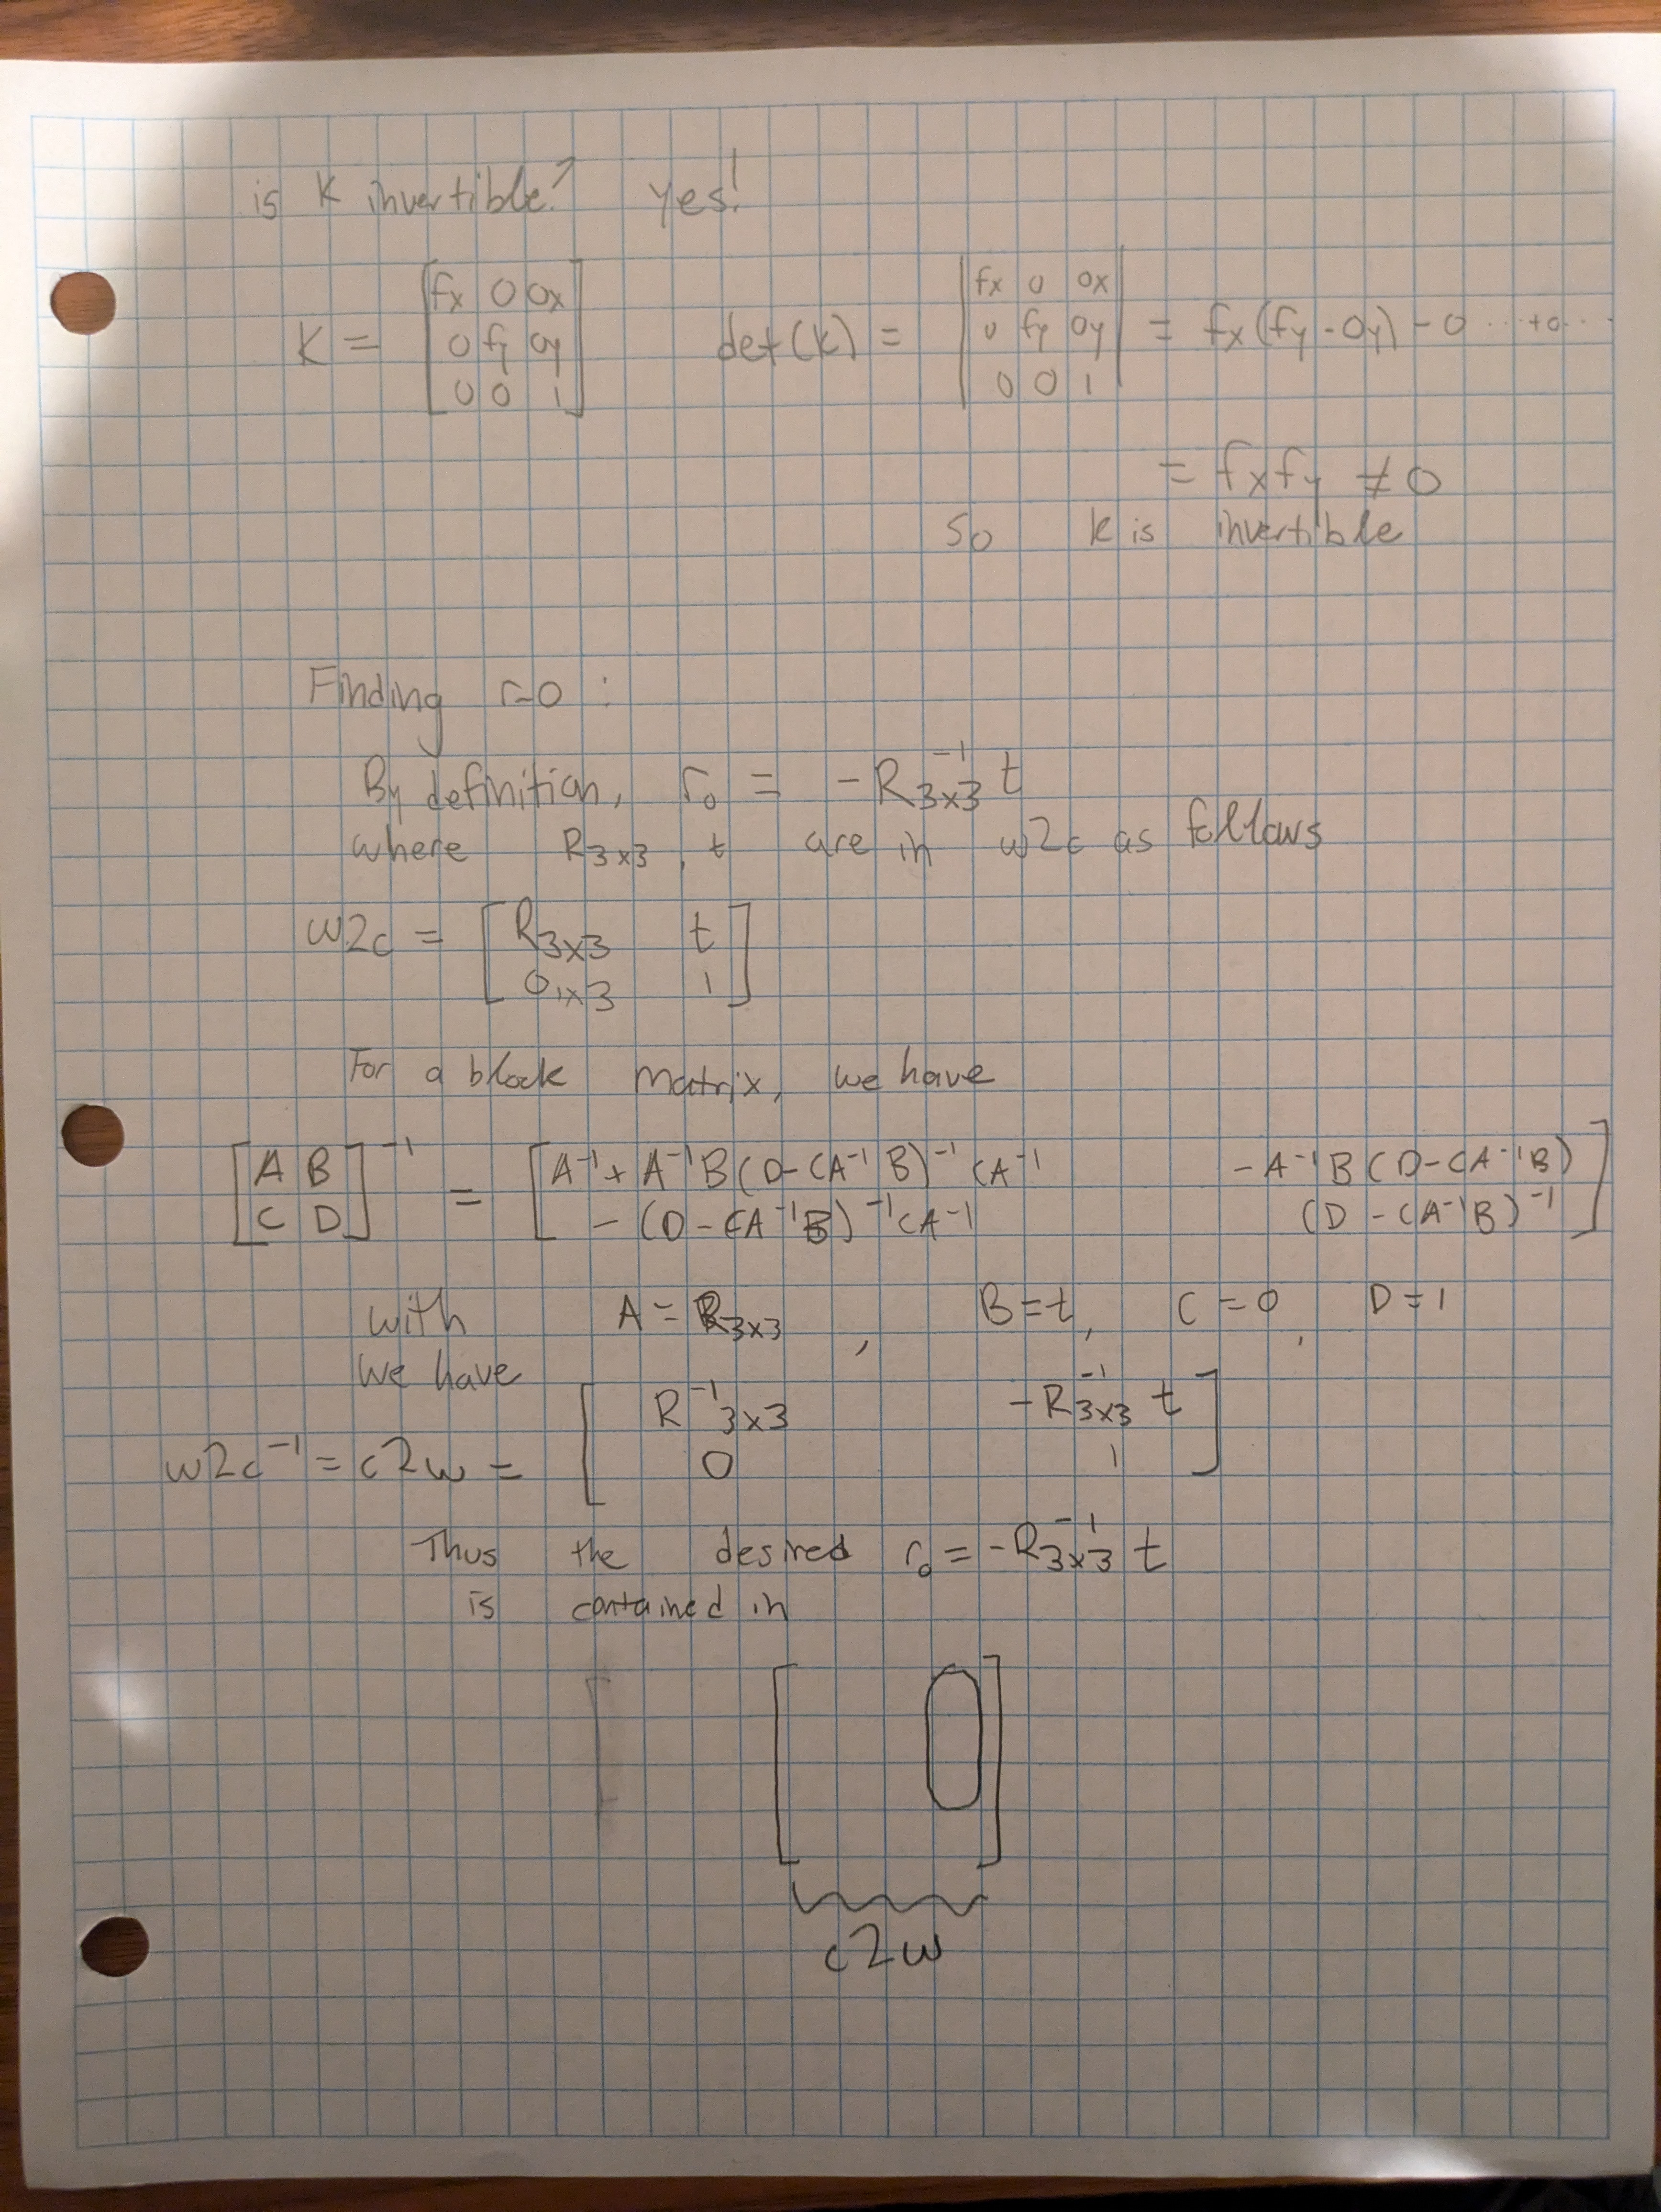 is K invertible? yes!
K = [fx 0 ox
0 fy oy
0 0 1]
det(K) = |fx 0 ox
0 fy oy
0 0 1| = fx(fy - oy) - 0 ... + 0 ...
= fx fy ≠ 0
So K is invertible
Finding r_0 :
By definition, r₀ = -R₃ₓ₃⁻¹ t
where R₃ₓ₃, t are in w2c as follows
w2c = [R₃ₓ₃ t
0₁ₓ₃ 1]
For a block matrix, we have
[A B
C D]⁻¹ = [A⁻¹ + A⁻¹B(D - CA⁻¹B)⁻¹CA⁻¹ -A⁻¹B(D - CA⁻¹B)
-(D - CA⁻¹B)⁻¹CA⁻¹ (D - CA⁻¹B)⁻¹]
with A = R₃ₓ₃, B = t, C = 0, D = 1
we have
w2c⁻¹ = c2w = [R⁻¹₃ₓ₃ -R₃ₓ₃⁻¹ t
0 1]
Thus the desired r₀ = -R₃ₓ₃⁻¹ t
is contained in
[ ]
c2w